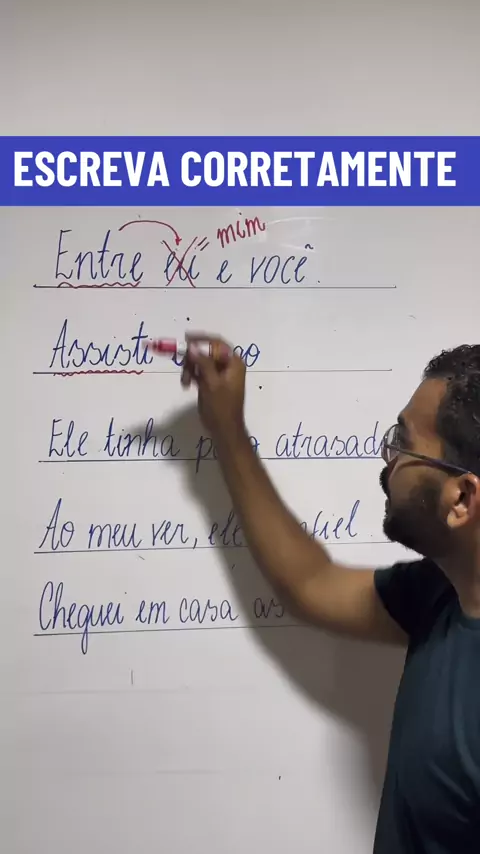 ESCREVA CORRETAMENTE
Entre eu e você. = mim
Assisti
Ele tinha atrasado
Ao meu ver, ele
Cheguei em casa